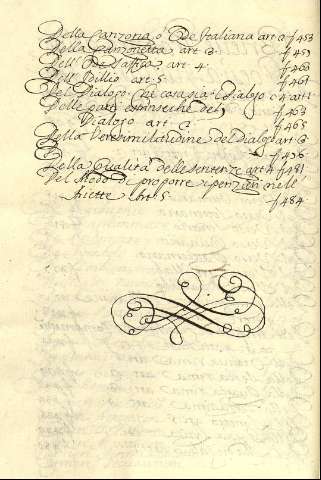 Della Canzona o Ode Italiana art 2 f 453
Della Canzonetta art 3 f 459
Dell'Ode Saffica art 4 f 460
Dell'Idillio art 5 f 461
Del Dialogo che cosa sia Dialogo c 4 art 1
Delle parti estrinseche del f 463
Dialogo art 2 f 465
Della Verisimilitudine del dialgo art 3
f 476
Della Qualità delle sentenze art 4 f 481
Del Modo di proporre nell
art 5 f 484